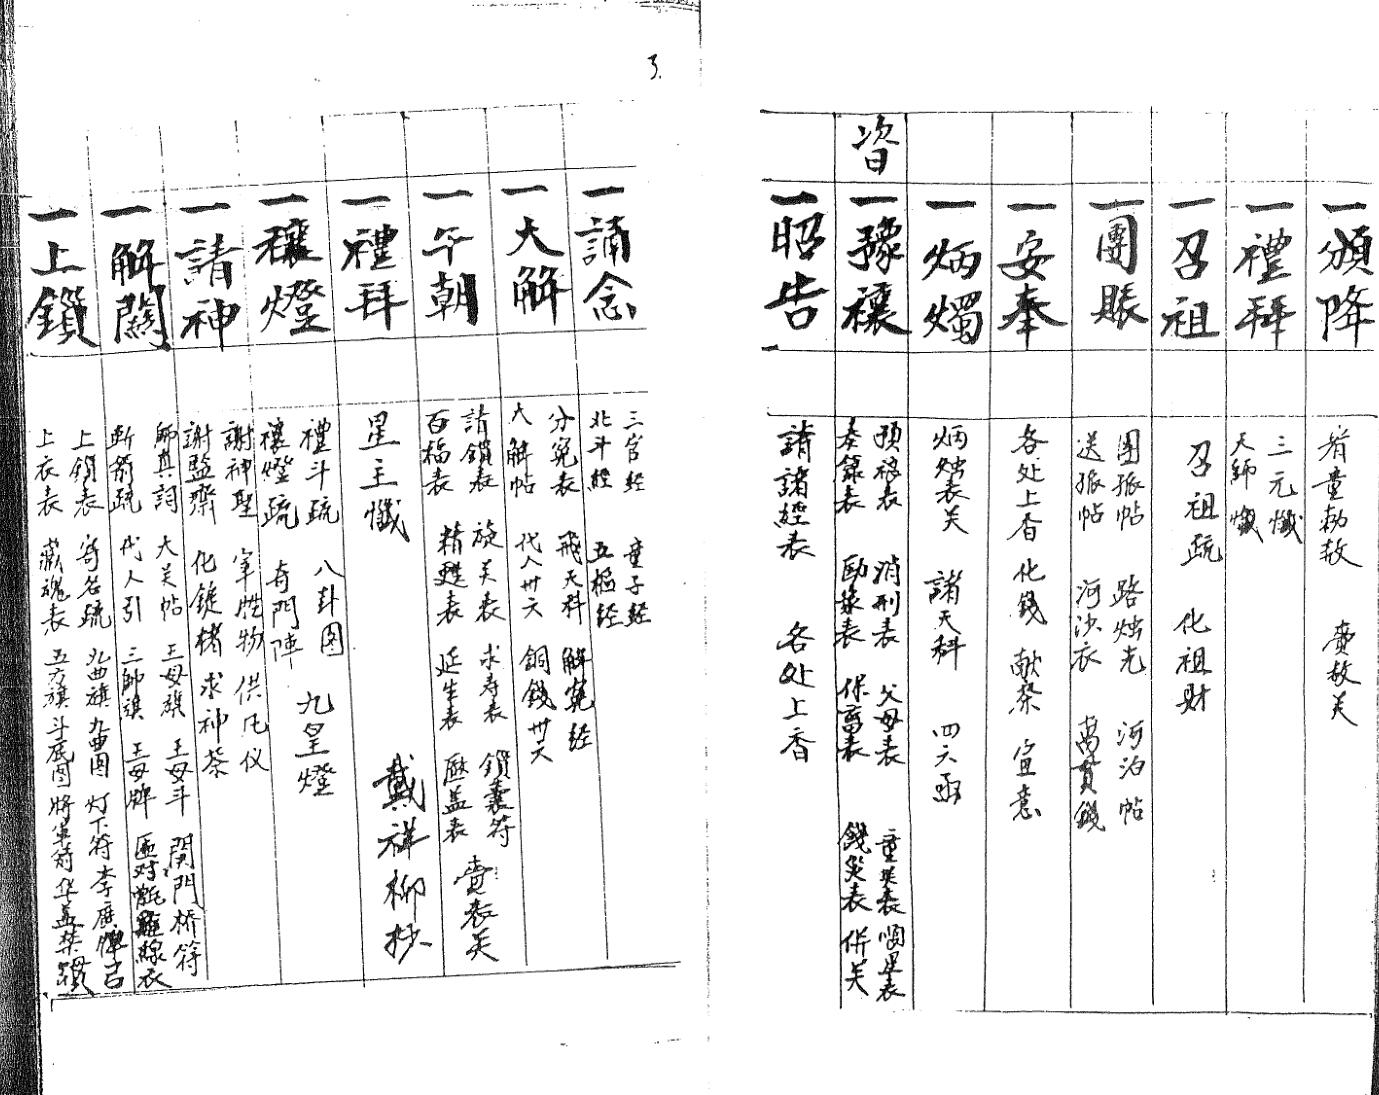 一頒降
齎童勅赦 賫赦关
一禮拜
三元懺
天師懺
一召祖
召祖疏 化祖財
一團賬
團賑帖 路烛光 河泊帖
送賑帖 河沙衣 萬貫錢
一安奉
各处上香 化錢 献祭 宣意
一炳燭
炳烛表关 諸天科 四六函
資
一豫禳
預禳表 消刑表 父母表 重喪表 順星表
奏籙表 保富表 錢災表 併关
一昭告
請諸經表 各处上香
3.
一誦念
三官經 童子經
北斗經 五樞經
一大解
分冤表 飛天科 解冤經
大解帖 代人卅六 銅錢卅六
一午朝
請鎖表 旋关表 求寿表 鎖囊符
百福表 精甦表 延生表 压盖表 賫表关
一禮拜
星主懺 戴祥柳抄
一禳燈
禮斗疏 八卦图 九皇燈
禳燈疏 奇門陣
一請神
謝神聖 牢牲物 供凡仪
謝監齋 化錠楮 求神茶
一解關
師真詞 大关帖 王母旗 王母斗 関門桥符
斬箭疏 代人引 三師旗 王母牌
一上鎖
上鎖表 寄名疏 九曲旗 九曲图 灯下符 李廣弹弓
上衣表 藏魂表 五方旗 斗底图 將军箭 华盖禁鎖